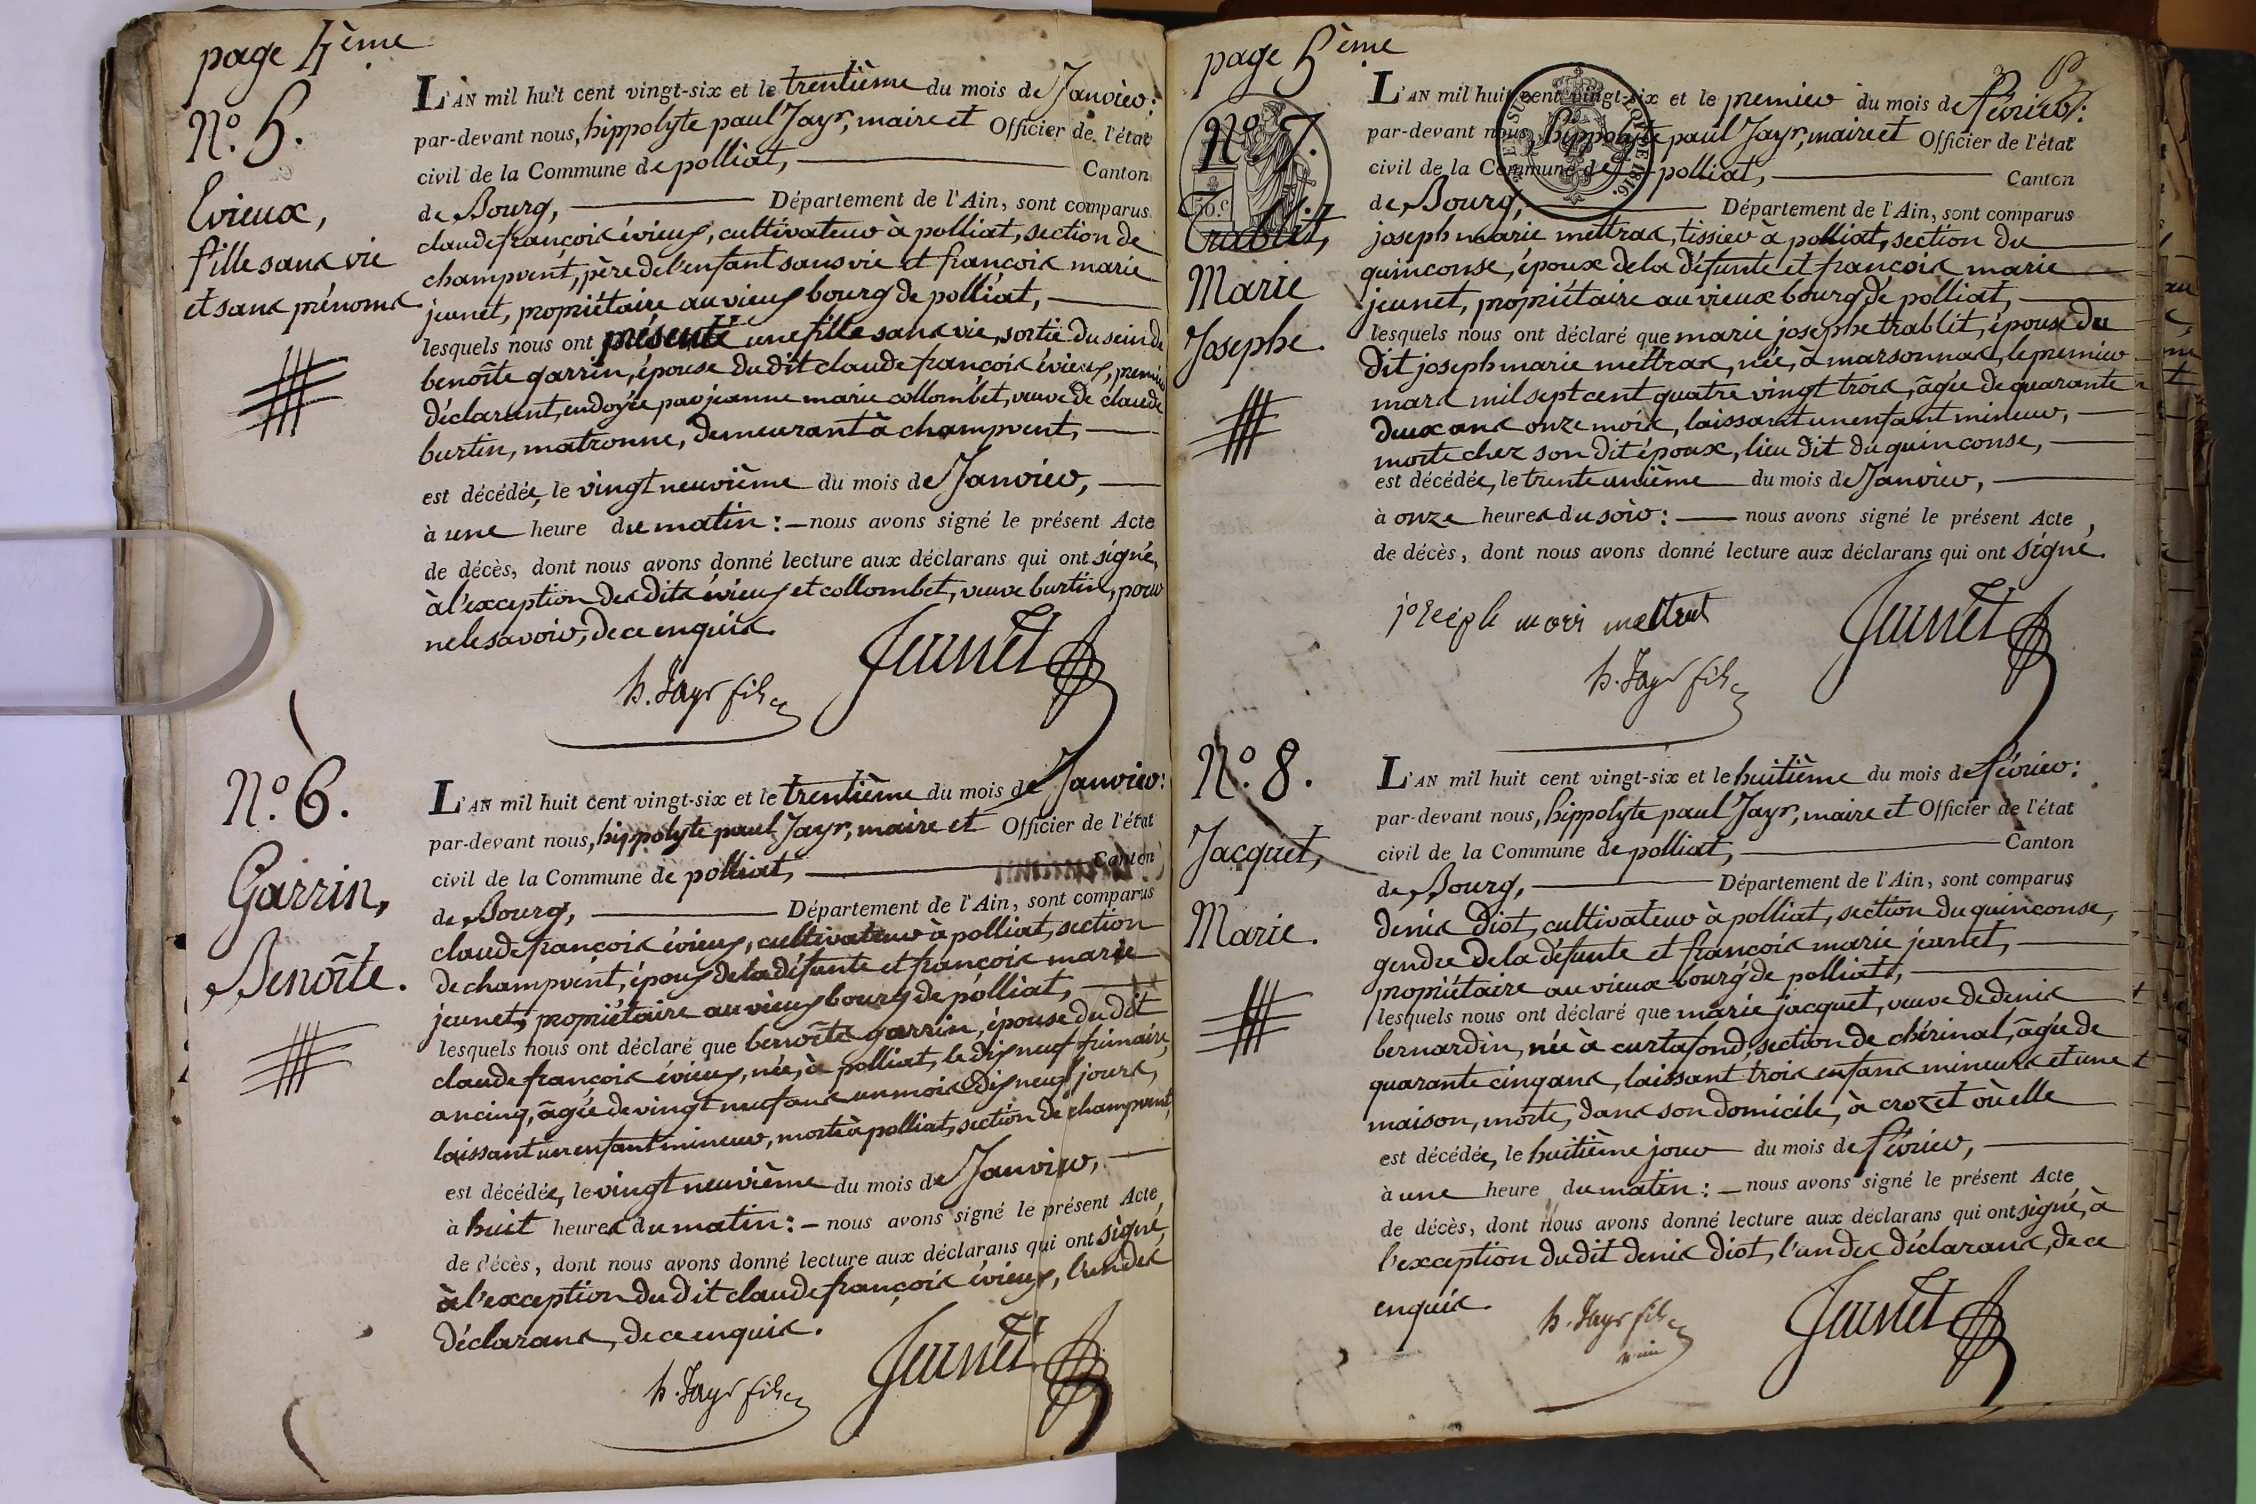 page 4ème
N.º 5.
Evieux,
fille sans vie
et sans prénoms
L'AN mil huit cent vingt-six et le trentième du mois de Janvier:
par-devant nous, hippolyte paul Jayr, maire et Officier de l'état
civil de la Commune de polliat, Canton
de Bourg, Département de l'Ain, sont comparus
claude françois évieux, cultivateur à polliat, section de
champvent, père de l'enfant sans vie et françois marie
jeunet, propriétaire au vieux bourg de polliat,
lesquels nous ont présenté une fille sans vie, sortie du sein de
benoîte garrin, épouse du dit claude françois évieux, premier
déclarant, endoyée par jeanne marie collombet, veuve de claude
burtin, matronne, demeurant à champvent,
est décédée, le vingt neuvième du mois de Janvier,
à une heure du matin: nous avons signé le présent Acte
de décès, dont nous avons donné lecture aux déclarans qui ont signé,
à l'exception des dits évieux et collombet, veuve burtin, pour
ne le savoir, de ce enquis.
Jeunet
h. Jayr fils
N.º 6.
Garrin,
Benoîte.
L'AN mil huit cent vingt-six et le trentième du mois de Janvier:
par-devant nous, hippolyte paul Jayr, maire et Officier de l'état
civil de la Commune de polliat, Canton
de Bourg, Département de l'Ain, sont comparus
claude françois évieux, cultivateur à polliat, section
de champvent, époux de la défunte et françois marie
jeunet, propriétaire au vieux bourg de polliat,
lesquels nous ont déclaré que benoîte garrin, épouse du dit
claude françois évieux, née, à polliat, le dix neuf frimaire,
an cinq, âgée de vingt neuf ans un mois dix neuf jours,
laissant un enfant mineur, morte à polliat, section de champvent,
est décédée, le vingt neuvième du mois de Janvier,
à huit heures du matin: nous avons signé le présent Acte
de décès, dont nous avons donné lecture aux déclarans qui ont signé,
à l'exception du dit claude françois évieux, l'un des
déclarans, de ce enquis.
Jeunet
h. Jayr fils
page 5ème
N.º 7.
Trablit,
Marie
Josephe.
L'AN mil huit cent vingt-six et le premier du mois de février:
par-devant nous, hippolyte paul Jayr, maire et Officier de l'état
civil de la Commune de polliat, Canton
de Bourg, Département de l'Ain, sont comparus
joseph marie mettras, tissier à polliat, section du
quinconse, époux de la défunte et françois marie
jeunet, propriétaire au vieux bourg de polliat,
lesquels nous ont déclaré que marie josephe trablit, épouse du
dit joseph marie mettras, née, à marsonnas, le premier
mars mil sept cent quatre vingt trois, âgée de quarante
deux ans onze mois, laissant un enfant mineur,
morte chez son dit époux, lieu dit du quinconse,
est décédée, le trente unième du mois de Janvier,
à onze heures du soir: nous avons signé le présent Acte
de décès, dont nous avons donné lecture aux déclarans qui ont signé.
joseph mari mettrat
Jeunet
h. Jayr fils
N.º 8.
Jacquet,
Marie.
L'AN mil huit cent vingt-six et le huitième du mois de février:
par-devant nous, hippolyte paul Jayr, maire et Officier de l'état
civil de la Commune de polliat, Canton
de Bourg, Département de l'Ain, sont comparus
denis diot, cultivateur à polliat, section du quinconse,
gendre de la défunte et françois marie jeunet,
propriétaire au vieux bourg de polliat,
lesquels nous ont déclaré que marie jacquet, veuve de denis
bernardin, née à curtafond, section de chérinal, âgée de
quarante cinq ans, laissant trois enfans mineurs et une
maison, morte, dans son domicile, à crozet où elle
est décédée, le huitième jour du mois de février,
à une heure du matin: nous avons signé le présent Acte
de décès, dont nous avons donné lecture aux déclarans qui ont signé, à
l'exception du dit denis diot, l'un des déclarans, de ce
enquis.
h. Jayr fils
Jeunet